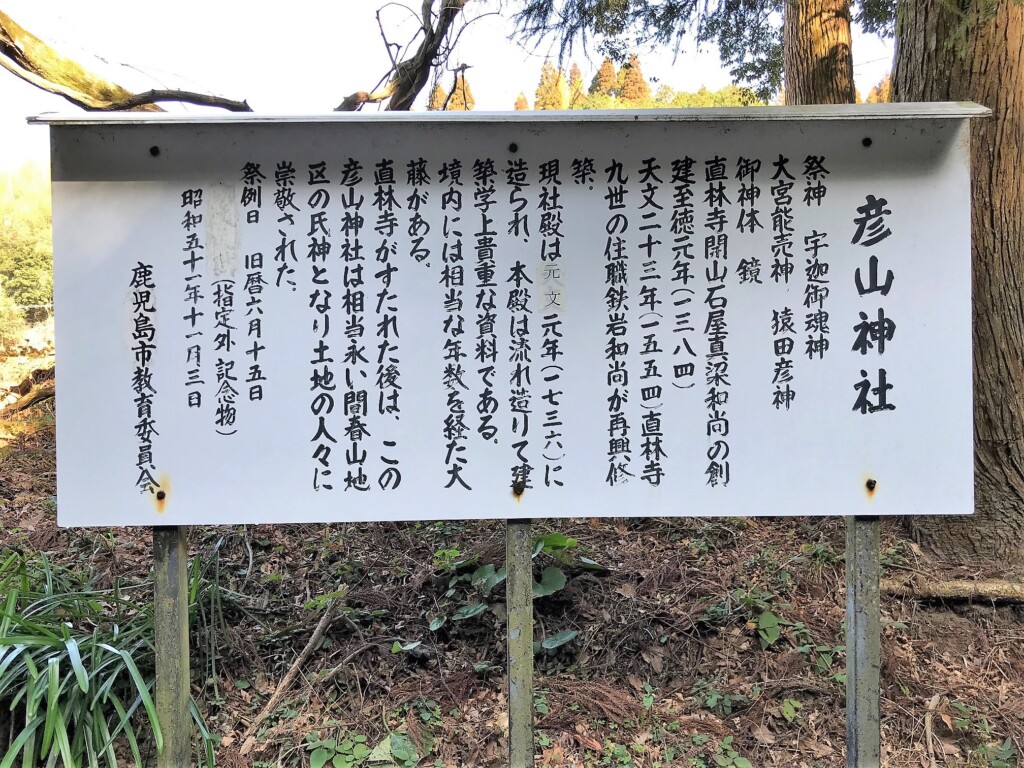 彦山神社
祭神　宇迦御魂神
大宮能売神　猿田彦神
御神体　鏡
直林寺開山石屋真梁和尚の創
建至徳元年(一三八四)
天文二十三年(一五五四)直林寺
九世の住職鉄岩和尚が再興修
築。
現社殿は元文元年(一七三六)に
造られ、本殿は流れ造りて建
築学上貴重な資料である。
境内には相当な年数を経た大
藤がある。
直林寺がすたれた後は、この
彦山神社は相当永い間春山地
区の氏神となり土地の人々に
崇敬された。
祭例日　旧暦六月十五日
(指定外記念物)
昭和五十一年十一月三日
鹿児島市教育委員会